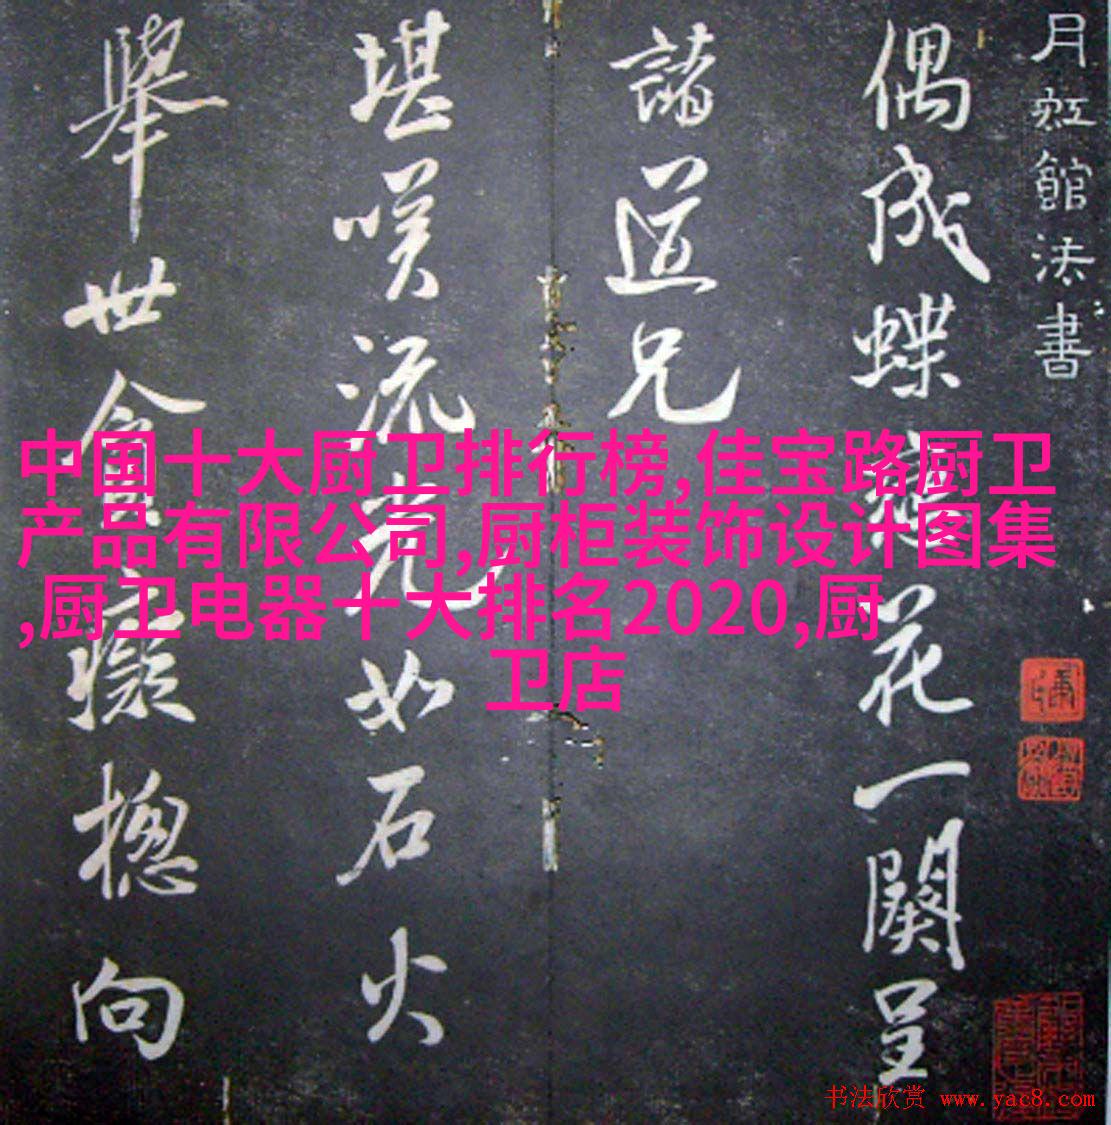 月虹館法書
偶成蝶戀花一闋呈
諸道兄
堪嘆流光如石火
舉世貪癡摠向
中国十大厨卫排行榜,佳宝路厨卫
产品有限公司,厨柜装饰设计图集
,厨卫电器十大排名2020,厨
卫店
书法欣赏 www.yac8.com